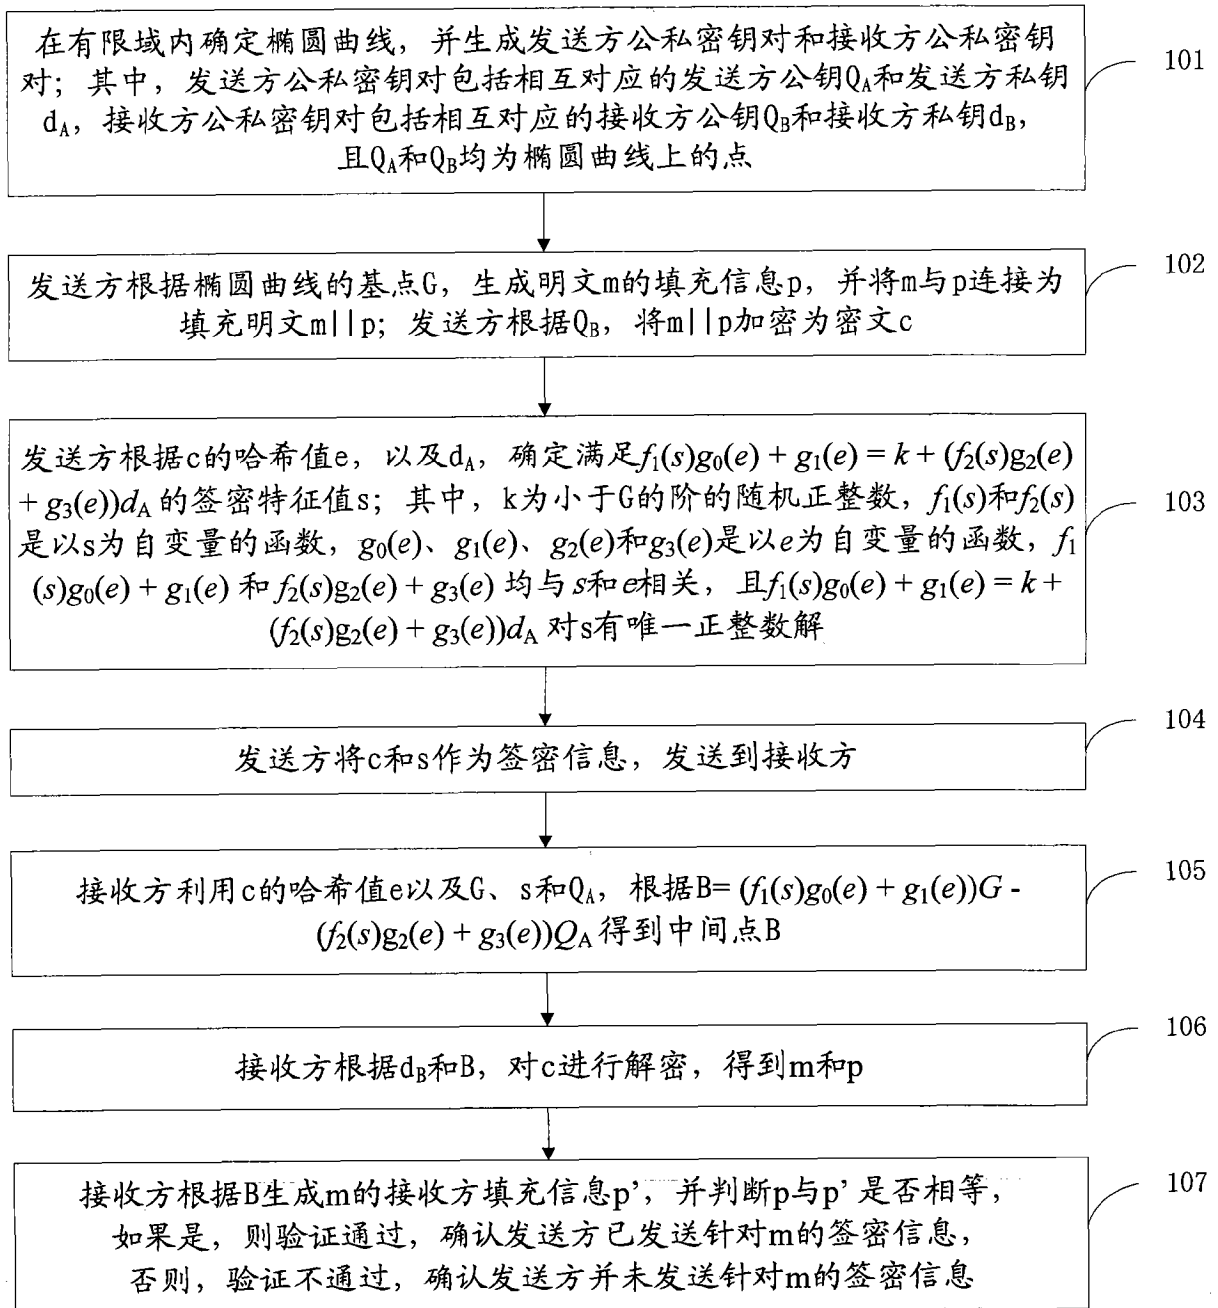 在有限域内确定椭圆曲线，并生成发送方公私密钥对和接收方公私密钥
对；其中，发送方公私密钥对包括相互对应的发送方公钥Q_A和发送方私钥
d_A，接收方公私密钥对包括相互对应的接收方公钥Q_B和接收方私钥d_B，
且Q_A和Q_B均为椭圆曲线上的点
101
发送方根据椭圆曲线的基点G，生成明文m的填充信息p，并将m与p连接为
填充明文m||p；发送方根据Q_B，将m||p加密为密文c
102
发送方根据c的哈希值e，以及d_A，确定满足f_1(s)g_0(e) + g_1(e) = k + (f_2(s)g_2(e)
+ g_3(e))d_A 的签密特征值s；其中，k为小于G的阶的随机正整数，f_1(s)和f_2(s)
是以s为自变量的函数，g_0(e)、g_1(e)、g_2(e)和g_3(e)是以e为自变量的函数，f_1
(s)g_0(e) + g_1(e) 和 f_2(s)g_2(e) + g_3(e) 均与s和e相关，且f_1(s)g_0(e) + g_1(e) = k +
(f_2(s)g_2(e) + g_3(e))d_A 对s有唯一正整数解
103
发送方将c和s作为签密信息，发送到接收方
104
接收方利用c的哈希值e以及G、s和Q_A，根据B= (f_1(s)g_0(e) + g_1(e))G -
(f_2(s)g_2(e) + g_3(e))Q_A 得到中间点B
105
接收方根据d_B和B，对c进行解密，得到m和p
106
接收方根据B生成m的接收方填充信息p’，并判断p与p’是否相等，
如果是，则验证通过，确认发送方已发送针对m的签密信息，
否则，验证不通过，确认发送方并未发送针对m的签密信息
107